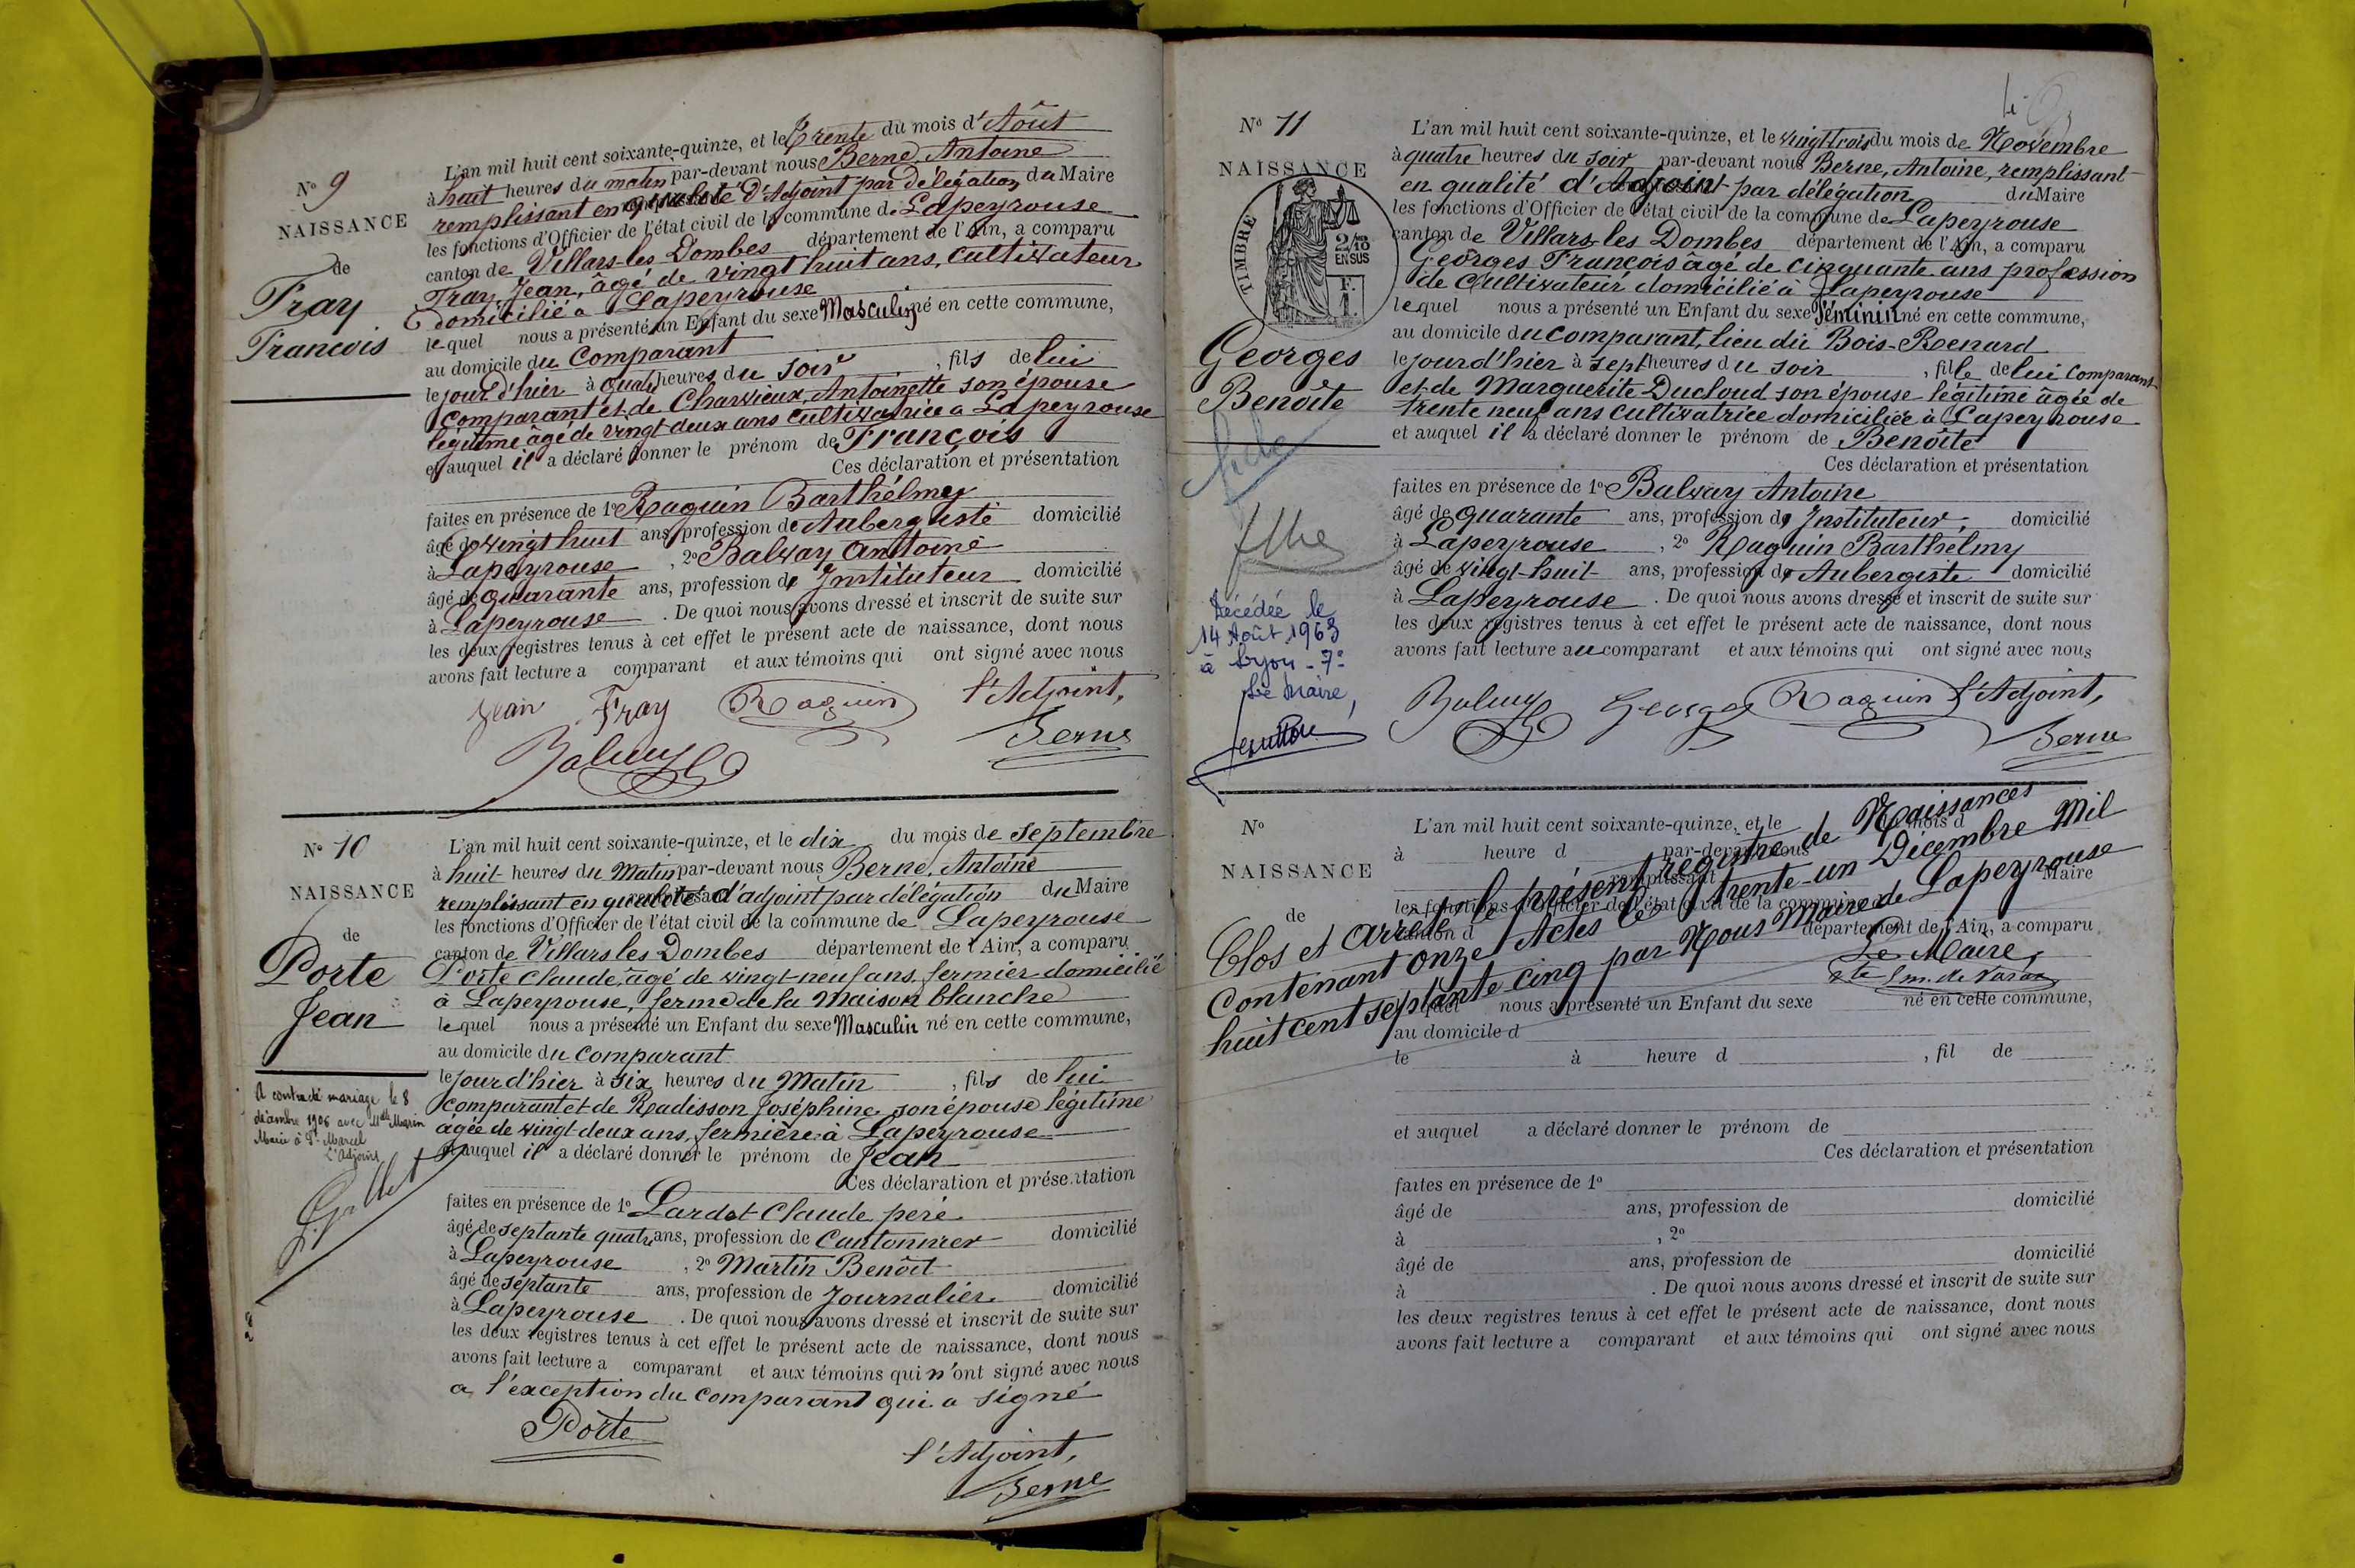 N° 9
NAISSANCE
de
Fray
Francois
L'an mil huit cent soixante-quinze, et le Trente du mois d'Août
à huit heures du matin par-devant nous Berne, Antoine
remplissant en qualité d'Adjoint par délégation du Maire
les fonctions d'Officier de l'état civil de la commune de Lapeyrouse
canton de Villars-les Dombes département de l'Ain, a comparu
Fray, Jean, âgé de vingt huit ans, cultivateur
domicilié à Lapeyrouse
lequel nous a présenté un Enfant du sexe Masculin né en cette commune,
au domicile du Comparant
le jour d'hier à quatre heures du soir , fils de lui
Comparant et de Charvieux, Antoinette son épouse
légitime âgé de vingt-deux ans cultivatrice a Lapeyrouse
et auquel il a déclaré donner le prénom de François
Ces déclaration et présentation
faites en présence de 1° Raquin Barthélmey
âgé de vingt huit ans, profession de Aubergiste domicilié
à Lapeyrouse , 2° Balvay Antoine
âgé de quarante ans, profession de Instituteur domicilié
à Lapeyrouse . De quoi nous avons dressé et inscrit de suite sur
les deux registres tenus à cet effet le présent acte de naissance, dont nous
avons fait lecture a comparant et aux témoins qui ont signé avec nous
Jean Fray Raquin l'Adjoint,
Balvay Berne
N° 10
NAISSANCE
de
Porte
Jean
A contracté mariage le 8
décembre 1906 avec Mlle Marin
Marie à St Marcel
L'Adjoint
L'an mil huit cent soixante-quinze, et le dix du mois de Septembre
à huit heures du Matin par-devant nous Berne, Antoine
remplissant en qualité d'adjoint par délégation du Maire
les fonctions d'Officier de l'état civil de la commune de Lapeyrouse
canton de Villars les Dombes département de l'Ain, a comparu
Porte Claude, âgé de vingt-neuf ans, fermier domicilié
à Lapeyrouse, ferme de la Maison blanche
lequel nous a présenté un Enfant du sexe Masculin né en cette commune,
au domicile du Comparant
le jour d'hier à six heures du Matin , fils de lui
comparant et de Radisson Joséphine son épouse légitime
âgée de vingt-deux ans, fermière à Lapeyrouse
et auquel il a déclaré donner le prénom de Jean
Ces déclaration et présentation
faites en présence de 1° Lardet Claude père
âgé de septante quatre ans, profession de Cantonnier domicilié
à Lapeyrouse , 2° Martin Benoît
âgé de septante ans, profession de Journalier domicilié
à Lapeyrouse . De quoi nous avons dressé et inscrit de suite sur
les deux registres tenus à cet effet le présent acte de naissance, dont nous
avons fait lecture a comparant et aux témoins qui n'ont signé avec nous
a l'exception du comparant qui a signé
Porte
l'Adjoint,
Berne
N° 11
NAISSANCE
TIMBRE
2/10
EN SUS
Georges
Benoite
Décédée le
14 Août 1963
à Lyon - 7e
Le Maire,
L'an mil huit cent soixante-quinze, et le vingt trois du mois de Novembre
à quatre heures du soir par-devant nous Berne, Antoine, remplissant
en qualité d'Adjoint par délégation du Maire
les fonctions d'Officier de l'état civil de la commune de Lapeyrouse
canton de Villars les Dombes département de l'Ain, a comparu
Georges François âgé de cinquante ans profession
de cultivateur domicilié à Lapeyrouse
lequel nous a présenté un Enfant du sexe féminin né en cette commune,
au domicile du comparant, lieu dit Bois-Renard
le jour d'hier à sept heures du soir , fille de lui Comparant
et de Marguerite Ducloud son épouse légitime âgée de
trente neuf ans cultivatrice domiciliée à Lapeyrouse
et auquel il a déclaré donner le prénom de Benoîte
Ces déclaration et présentation
faites en présence de 1° Balvay Antoine
âgé de quarante ans, profession de Instituteur, domicilié
à Lapeyrouse , 2° Raquin Barthelmy
âgé de vingt-huit ans, profession de Aubergiste domicilié
à Lapeyrouse . De quoi nous avons dressé et inscrit de suite sur
les deux registres tenus à cet effet le présent acte de naissance, dont nous
avons fait lecture au comparant et aux témoins qui ont signé avec nous
Balvay Georges Raquin l'Adjoint,
Berne
N°
NAISSANCE
de
L'an mil huit cent soixante-quinze, et le mois d
à heure d par-devant nous
remplissant Maire
les fonctions d'Officier de l'état civil de la commune d
canton d département de l'Ain, a comparu
Clos et arrêté le présent registre de Naissances
Contenant onze Actes le trente-un Décembre Mil
huit cent septante cinq par Nous Maire de Lapeyrouse
Le Maire,
quel nous a présenté un Enfant du sexe né en cette commune,
au domicile d
le à heure d , fil de
et auquel a déclaré donner le prénom de
Ces déclaration et présentation
faites en présence de 1°
âgé de ans, profession de domicilié
à , 2°
âgé de ans, profession de domicilié
à . De quoi nous avons dressé et inscrit de suite sur
les deux registres tenus à cet effet le présent acte de naissance, dont nous
avons fait lecture a comparant et aux témoins qui ont signé avec nous